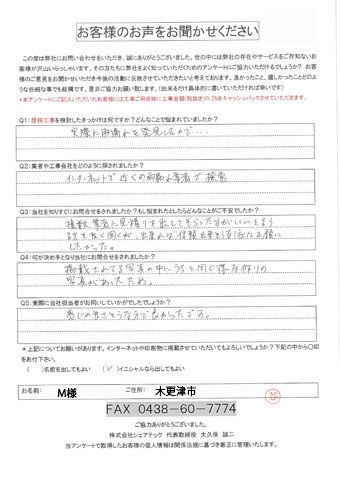 お客様のお声をお聞かせください
この度は弊社にお問い合わせをいただき、誠にありがとうございました。世の中には弊社の存在やサービスをご存知ないお
客様が沢山いらっしゃいます。その方たちに弊社をよく知っていただくためのアンケートにご協力いただけるでしょうか? お客
様のご意見をお聞かせいただき今後の活動に反映させていただきたいと考えております。良かったこと、嬉しかったことどのよ
うな些細な事でも結構です。是非ご協力お願い致します。(出来るだけ具体的に書いていただければ幸いです)
*本アンケートにご記入いただいたお客様には工事ご用命時に工事金額(税抜き)の2%をキャッシュバックさせていただきます。
Q1:屋根工事を検討したきっかけは何ですか?どんなことで悩まれていましたか?
実際に雨漏れを発見したので…
Q2:業者や工事会社をどのように探されましたか?
インターネットで近くの雨漏れ業者で検索
Q3:当社を知りすぐにお問合せをされましたか?もし悩まれたとしたらどんなことがご不安でしたか?
複数業者に見積りを出してもらった方がいいと言う
話を良く聞くが、出来れば信頼出来る1社にお願い
したかった。
Q4:何が決め手となり当社にお問合せをされましたか?
掲載されてる写真の中にうちと同じ様な作りの
写真があったため。
Q5:実際に当社担当者がお伺いしていかがでしたでしょうか?
感じの良さそうな方で良かったです。
*上記についてお願いがあります。インターネットや印刷物に掲載させていただいてもよろしいでしょうか? 下記の中から〇印
をお付け下さい。
( )名前を出してもよい (✓)イニシャルなら出してもよい
お名前: M様 ご住所: 木更津市
FAX 0438-60-7774
ご協力ありがとうございました。
株式会社シェアテック 代表取締役 大久保 誠二
当アンケートで取得したお客様の個人情報は関係法規に基づき厳正に管理いたします。